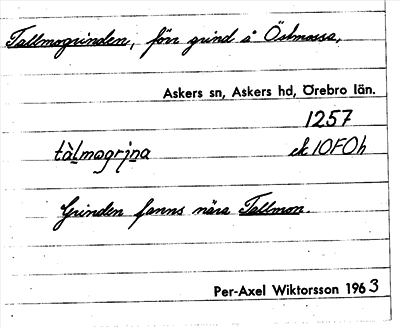 Tallmogrinden, förr grind å Östmossa,
Askers sn, Askers hd, Örebro län.
1257
tàlmogrịna ek 10F0h
Grinden fanns nära Tallmon.
Per-Axel Wiktorsson 1963